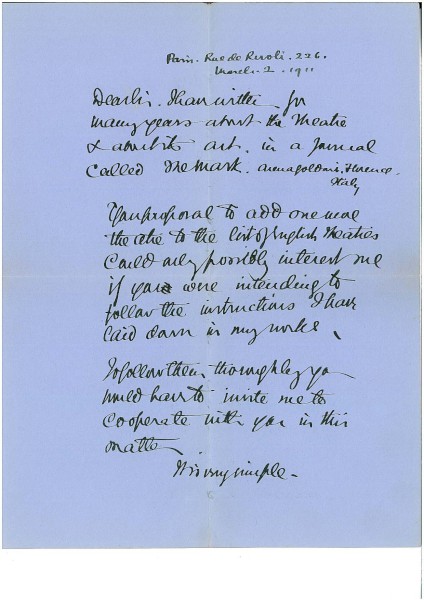 Paris. Rue de Rivoli. 226.
March. 2. 1911
Dear Sir. I have written for
many years about the Theatre
& about its art. in a Journal
called The Mark. Arena Goldoni, Florence.
Italy
Your proposal to add one more
theatre to the list of English Theatres
could only possibly interest me
if you were intending to
follow the instructions I have
laid down in my works.
To follow them thoroughly you
would have to invite me to
cooperate with you in this
matter.
It is very simple.